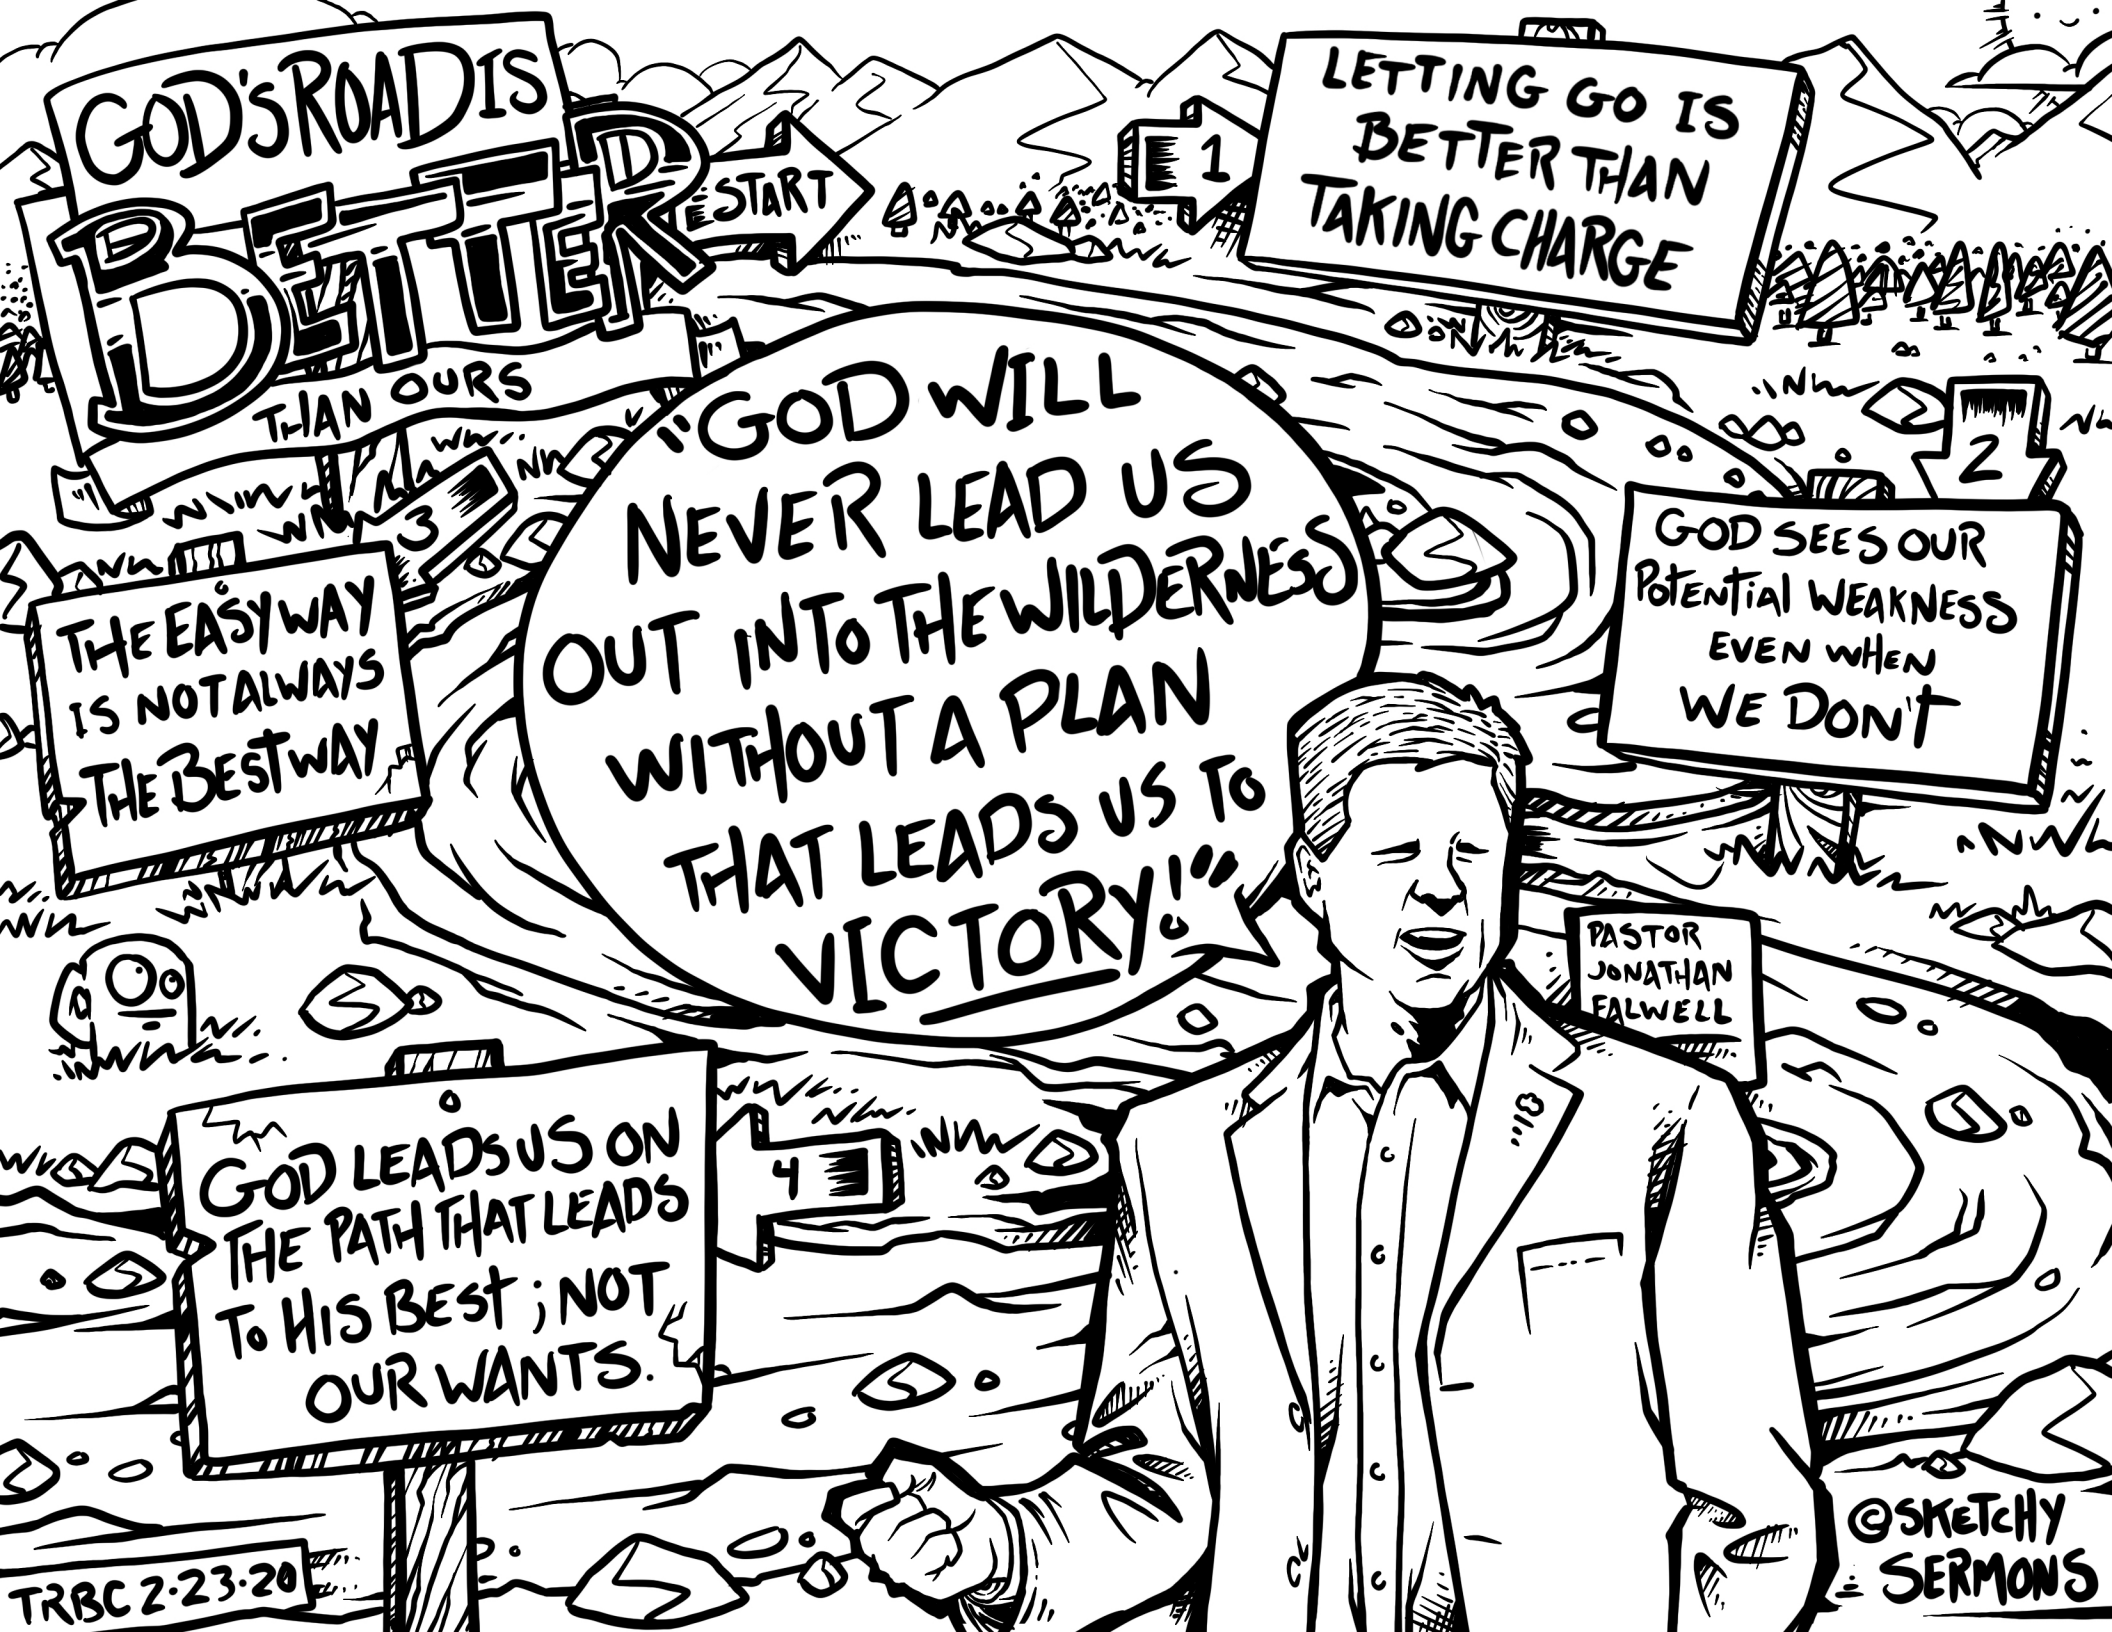 GOD'S ROAD IS
BETTER
THAN OURS
START
1
LETTING GO IS
BETTER THAN
TAKING CHARGE
2
GOD SEES OUR
POTENTIAL WEAKNESS
EVEN WHEN
WE DON'T
3
THE EASY WAY
IS NOT ALWAYS
THE BEST WAY
"GOD WILL
NEVER LEAD US
OUT INTO THE WILDERNESS
WITHOUT A PLAN
THAT LEADS US TO
VICTORY!"
PASTOR
JONATHAN
FALWELL
4
GOD LEADS US ON
THE PATH THAT LEADS
TO HIS BEST; NOT
OUR WANTS.
TRBC 2·23·20
©SKETCHY
SERMONS